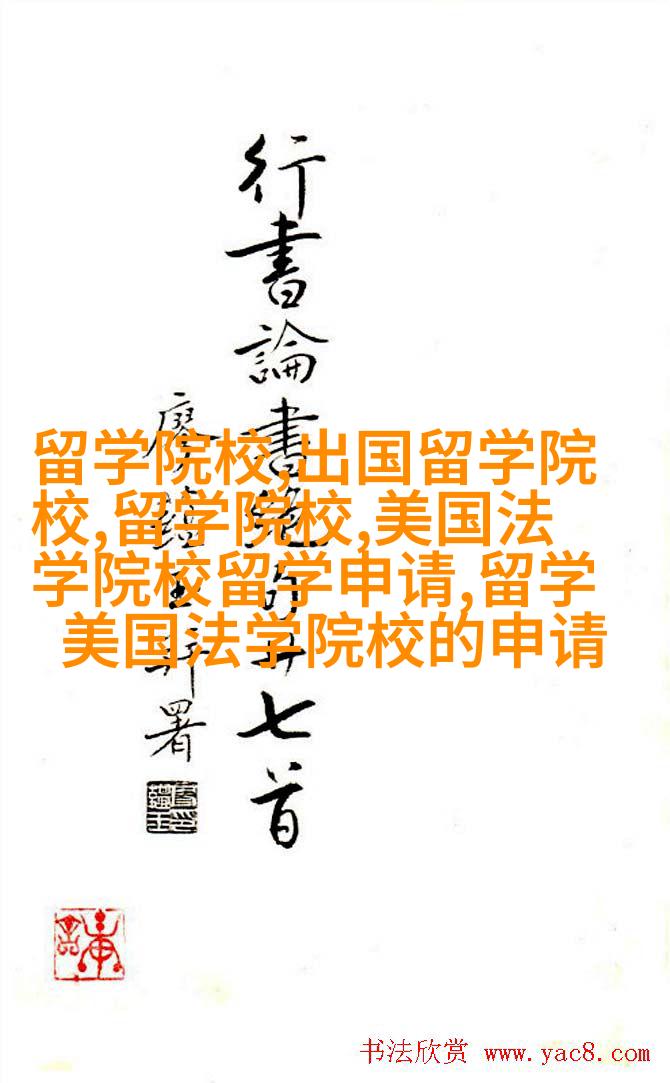 行書論書絕句廿七首
廖蘊玉拜署
留学院校,出国留学院
校,留学院校,美国法
学院校留学申请,留学
美国法学院校的申请
书法欣赏 www.yac8.com